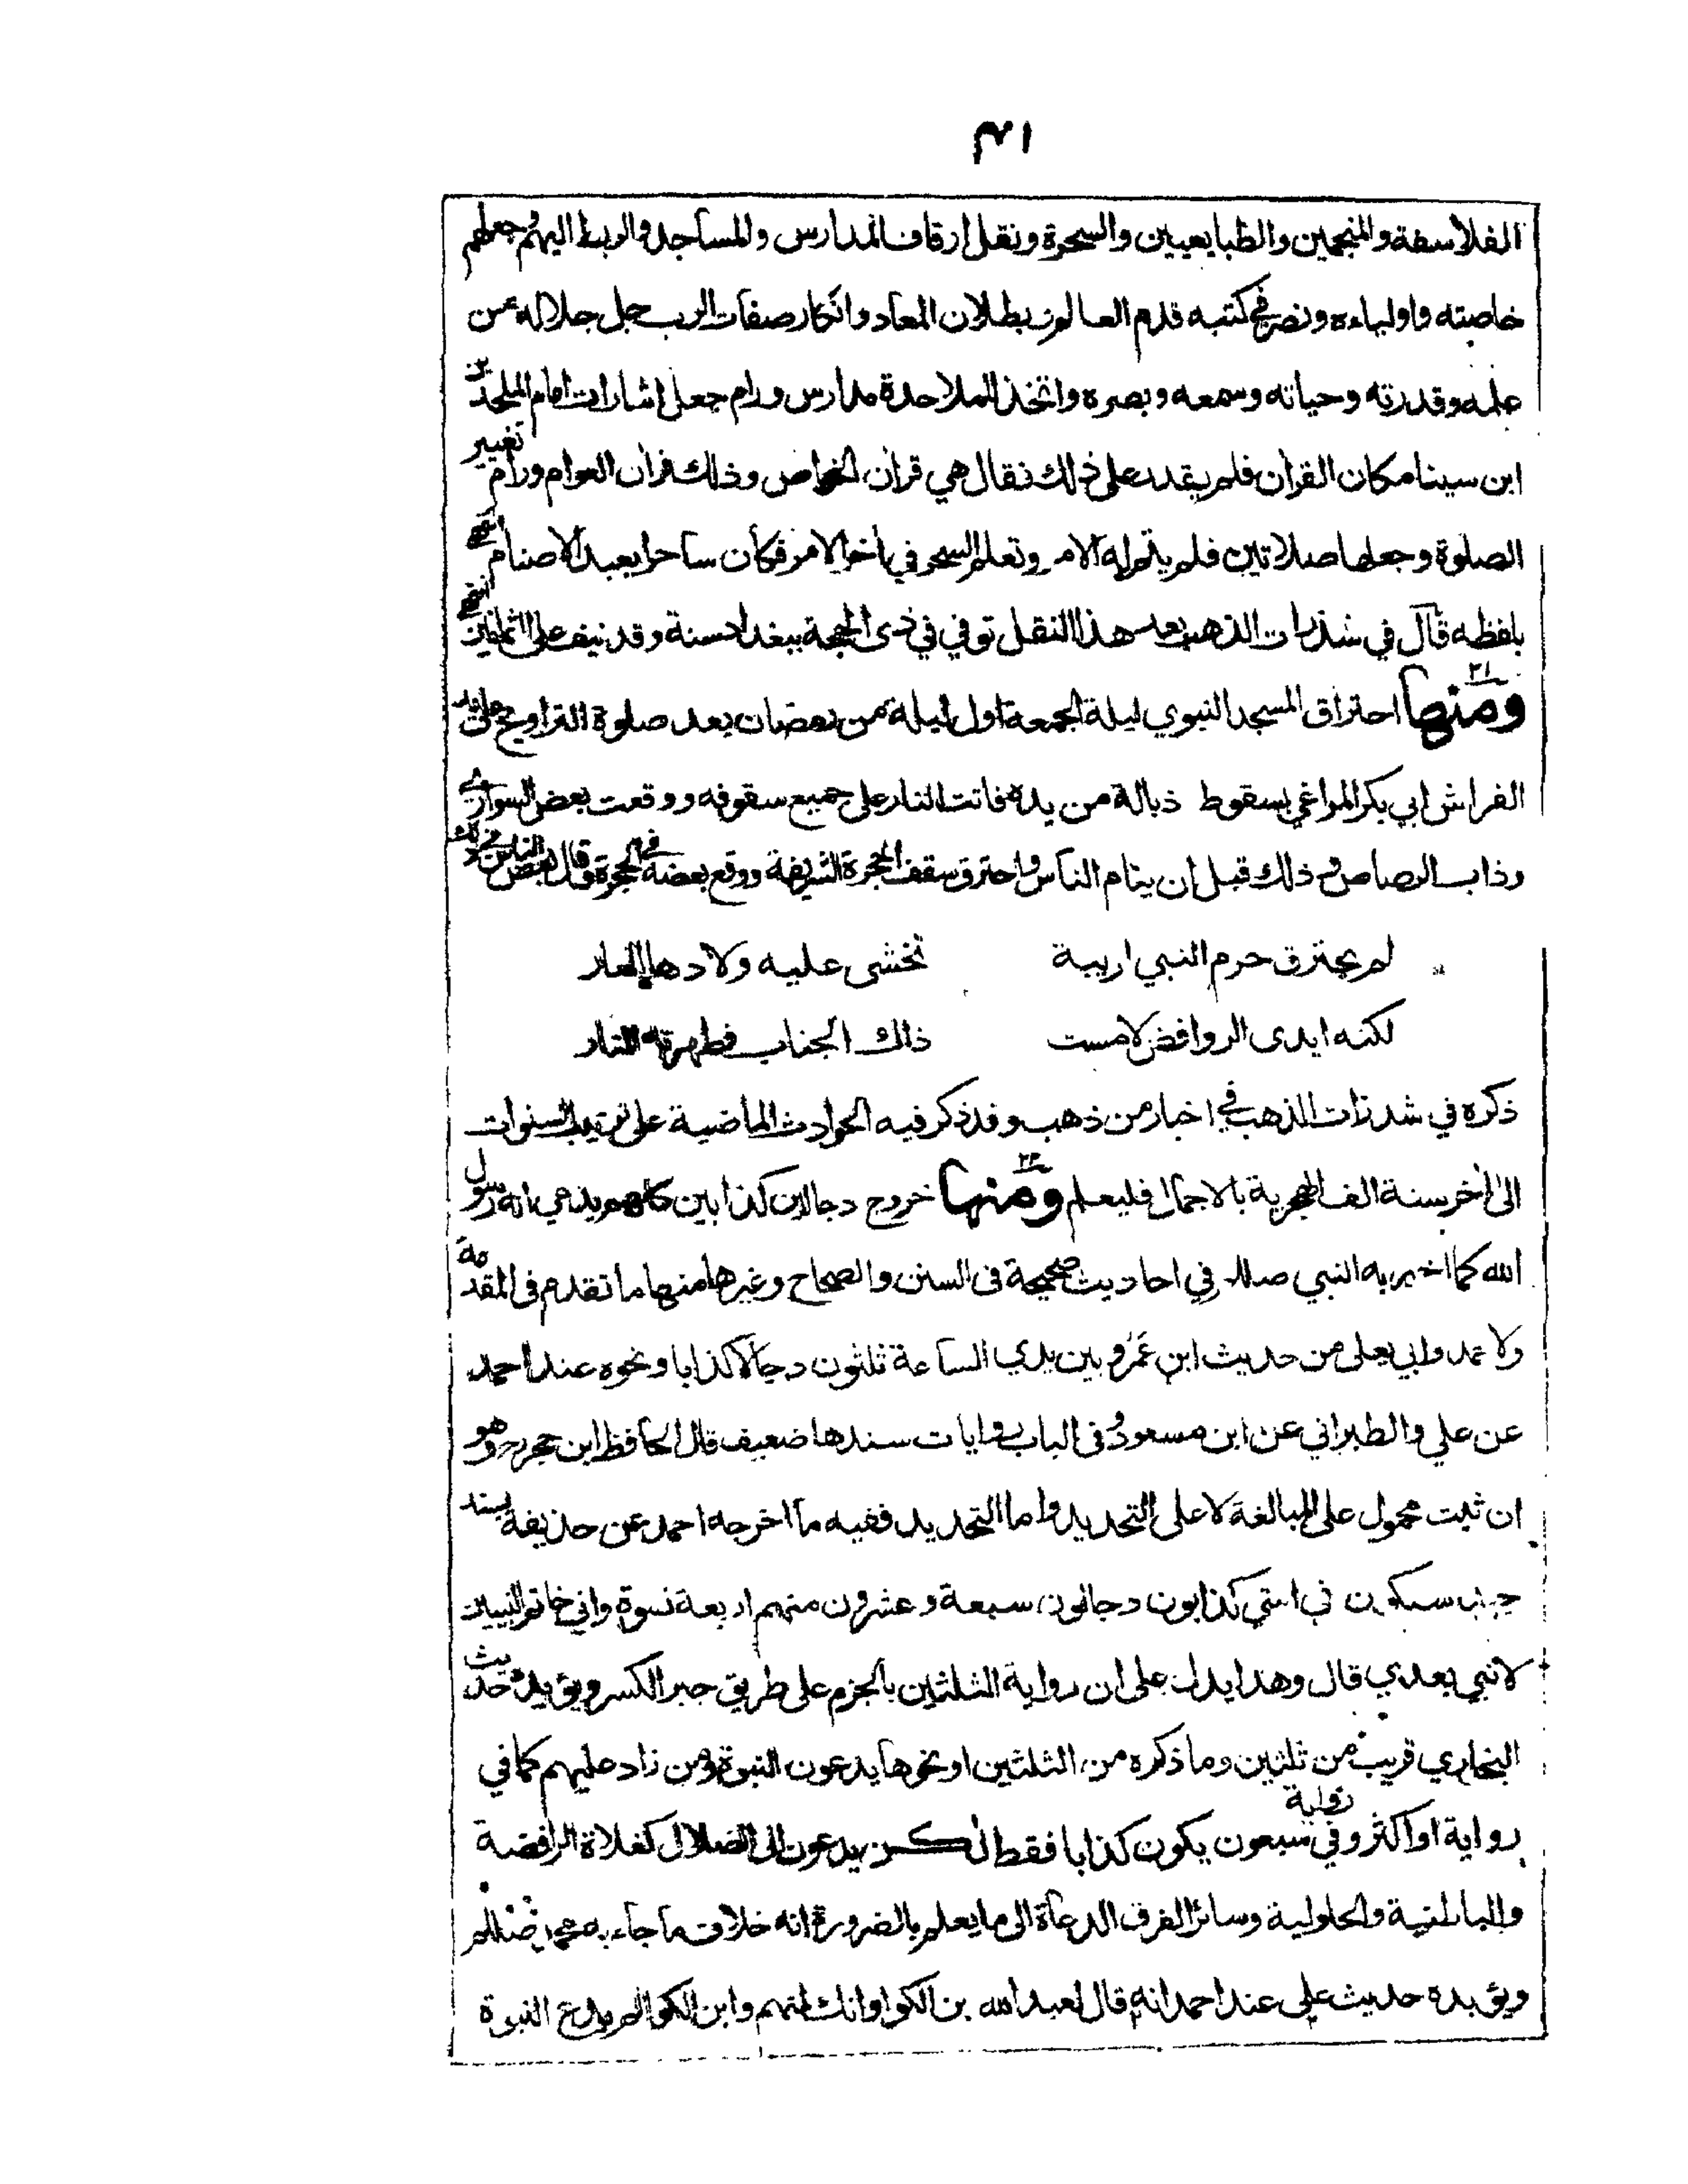 ٣١
الفلاسفة والمنجمين والطبايعيين والسحرة ونقل اوقاف المدارس والمساجد والربط اليهم وجعلهم
خاصته واولياءه ونصر في كتبه قدم العالم وبطلان المعاد وانكار صفات الرب جل جلاله من
علمه وقدرته وحياته وسمعه وبصره واتخذ للملاحدة مدارس ورام جعل اشارات امام الملحدين
ابن سينا مكان القرآن فلم يقدر على ذلك فقال هي قرآن الخواص وذلك قرآن العوام ورام تغيير
الصلوة وجعلها صلاتين فلم يتم له الامر وتعلم السحر في آخر الامر فكان ساحرا يعبد الاصنام انتهى
بلفظه قال في شذرات الذهب بعد هذا النقل توفي في ذي الحجة ببغداد سنة وقد نيف على الثمانين انتهى
٢١
ومنها احتراق المسجد النبوي ليلة الجمعة اول ليلة من رمضان بعد صلوة التراويح على يد
الفراش ابي بكر المراغي بسقوط ذبالة من يده فاتت النار على جميع سقوفه ووقعت بعض السواري
وذاب الرصاص وذلك قبل ان ينام الناس واحترق سقف الحجرة الشريفة ووقع بعضه في الحجرة وقال بعض الناس في ذلك
لم يحترق حرم النبي لريبة تخشى عليه ولا دهاه العار
لكنه ايدى الروافض لامست ذاك الجناب فطهرته النار
ذكره في شذرات الذهب في اخبار من ذهب وقد ذكر فيه الحوادث الماضية على ترتيب السنوات
الى آخر سنة الف الهجرية بالاجمال فليعلم ٢٢ ومنها خروج دجالين كذابين كلهم يدعي انه رسول
الله كما اخبر به النبي صلله في احاديث صحيحة في السنن والصحاح وغيرها منها ما تقدم في المقدمة
ولاحمد وابي يعلى من حديث ابن عمرو بين يدي الساعة ثلثون دجالا كذابا ونحوه عند احمد
عن علي والطبراني عن ابن مسعود وفي الباب روايات سندها ضعيف قال الحافظ ابن حجر رح وهو
ان ثبت محمول على المبالغة لا على التحديد واما التحديد ففيه ما اخرجه احمد عن حذيفة بسند
جيد سيكون في امتي كذابون دجالون سبعة وعشرون منهم اربعة نسوة واني خاتم النبيين
لا نبي بعدي قال وهذا يدل على ان رواية الثلثين بالجزم على طريق جبر الكسر ويؤيده حديث
البخاري قريب من ثلثين وما ذكره من الثلثين او نحوها يدعون النبوة ومن زاد عليهم كما في
رواية او اكثر وفي رواية سبعون يكون كذابا فقط لكن يدعون الى الضلال كغلاة الرافضة
والباطنية والحلولية وسائر الفرق الدعاة الى ما يعلم بالضرورة انه خلاف ما جاء به محمد صللم
ويؤيده حديث علي عند احمد انه قال لعبد الله بن الكوا وانك لمنهم وابن الكوا لم يدع النبوة